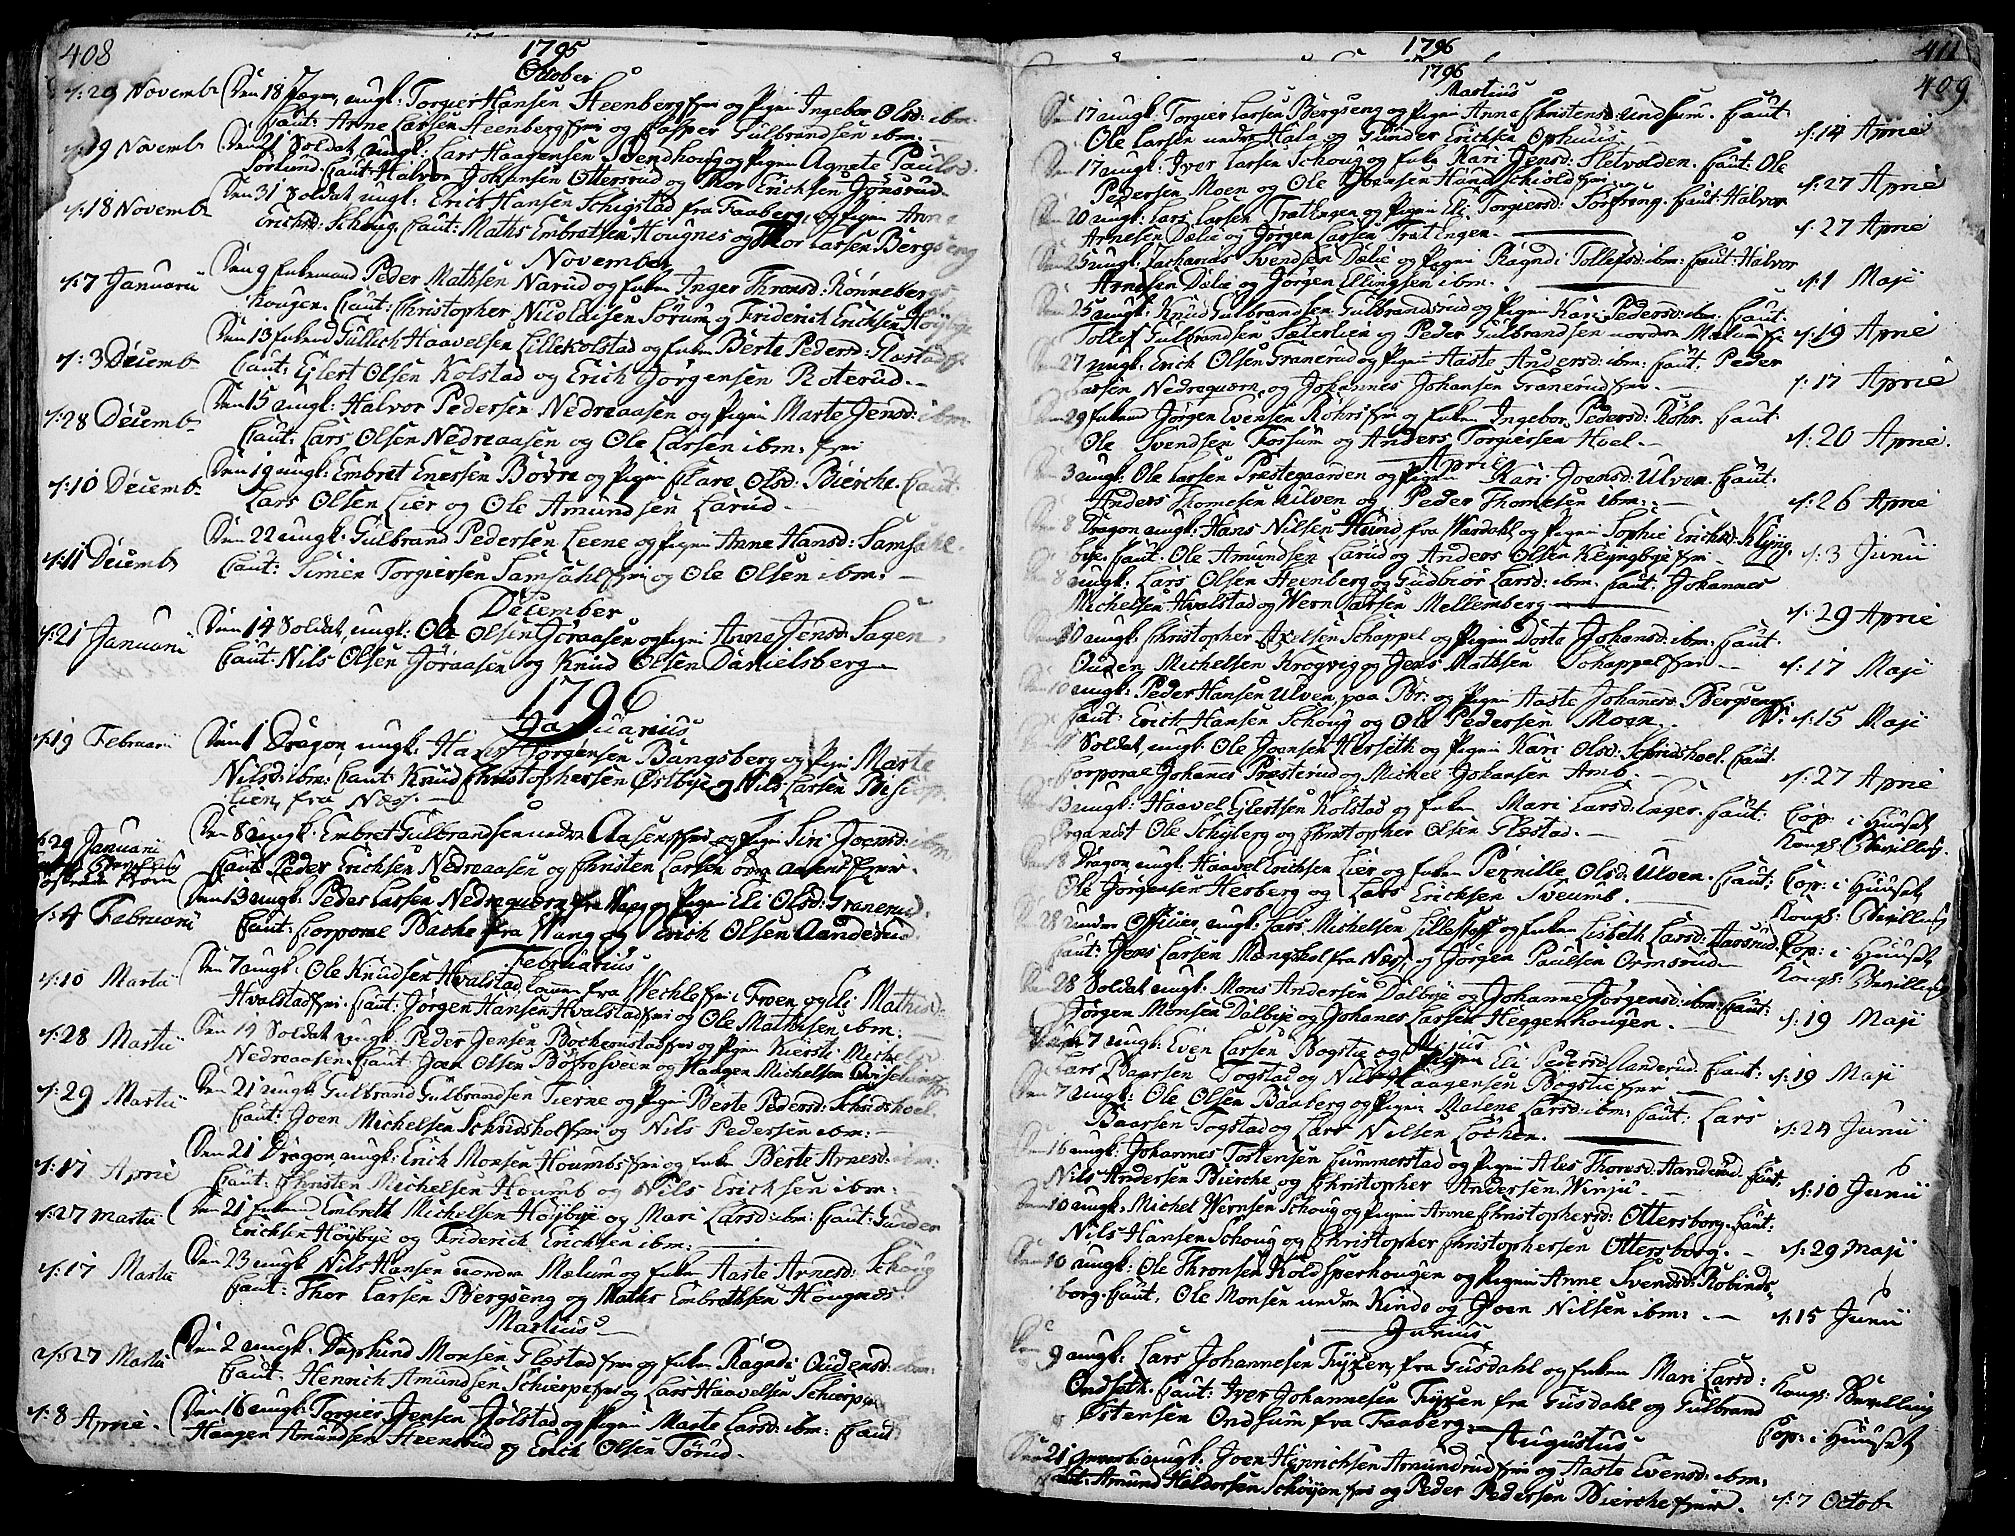 408
1795
October
d: 29 Novembr Den 18 ungk: Torgier Hansen Steenberg og Pigen Ingebor Olsd: ibm.
Caut: Arne Larsen Steenberg og Casper Gulbrandsen ibm.
d: 19 Novembr Den 21 Soldat ungk: Lars Haagensen Svendhoug og Pigen Agnete Paulsd.
Caut: Halvor Johansen Ottersrud og Thor Erichsen Jønsrud
d: 18 Novembr Den 31 Soldat ungk: Erich Hansen Schigstad fra Faaberg, og Pigen Anne
Erichsd: Schoug. Caut: Maths Embretsen Hougnes og Thor Larsen Bergseng
November
d: 7 Januarii Den 9 Enkemand Peder Mathsen Narud og Enken Inger Thronsd: Rønneberg
hougen. Caut: Christopher Nicolaisen Sørum og Friderich Erichsen Høybye
d: 3 Decemb Den 13 Enkemd Gullich Haavelsen Lillekolstad og Enken Berte Pedersd: Glæstad
Caut: Eilert Olsen Kolstad og Erich Jørgensen Roterud.
d: 28 Decembr Den 15 ungk: Halvor Pedersen Nedreaasen og Pigen Marte Jensd: ibm.
Caut: Lars Olsen Nedreaasen og Ole Larsen ibm:
d: 10 Decembr Den 19 ungk: Embret Enersen Bovre og Pigen Clare Olsd: Bierche. Caut:
Lars Olsen Lier og Ole Amundsen Larud.
d: 11 Decemb Den 22 ungk: Gulbrand Pedersen Leene og Pigen Anne Hansd: Samsahl.
Caut: Simen Torgiersen Samsahl og Ole Olsen ibm:
December
d: 21 Januarii Den 14 Soldat, ungk: Ole Olsen Jøraasen og Pigen Anne Jensd: Sagen.
Caut: Nils Olsen Jøraasen og Knud Olsen Danielsberg
1796
Januarius
d: 19 Februarii Den 1 Dragon, ungk: Jørgensen Bangsberg og Pigen Marte
Nilsd: ibm: Caut: Knud Christophersen Østbye og Nils Larsen Bisop
lien, fra Næss.
29 Januarii Den 8 ungk: Embret Gulbrandsen nedre Aasen og Pigen Siri Joensd: ibm
Caut: Peder Erichsen Nedreaasen og Christen Larsen øvre
d: 4 Februarii Den 13 ungk: Peder Larsen Nedrequern fra Wang og Pigen Eli Olsd: Granerud.
Caut: Corporal Bache fra Wang og Erich Olsen Aanderud.
Februarius
d: 10 Martii Den 7 ungk: Ole Knudsen Hvalstad, fra Wechle i Froen og Eli Mathisd:
Hvalstad. Caut: Jørgen Hansen Hvalstad og Ole Mathisen ibm:
d: 28 Martii Den 19 Soldat ungk: Peder Jensen og Pigen Kiersti Michelsd:
Nedreaasen. Caut: Joen Olsen og Haagen Michelsen
d: 29 Martii Den 21 ungk: Gulbrand Gulbrandsen Tierne og Pigen Berte Pedersd: Schredshoel.
Caut: Joen Michelsen Schredshol og Nils Pedersen ibm:
d: 17 April Den 21 Dragon, ungk: Erich Monsen Houmb og Enken Berte Arnesd: ibm:
Caut: Christen Michelsen Houmb og Nils Erichsen ibm:
d: 27 Martii Den 21 Enkemd Embreth Michelsen Høybye og Mari Larsd: ibm: Caut: Gunder
Erichsen Høybye og Friderich Erichsen ibm:
d: 17 Martii Den 23 ungk: Nils Hansen nordre Mælum og Enken Aaste Arnesd: Schoug
Caut: Thor Larsen Bergseng og Maths Embrethsen Hougnes
Martius
d: 27 Martii Den 2 ungk: Monsen Glæstad og Enken Ragndi Oudensd: ibm:
Caut: Henrich Amundsen Schierpe og Lars Haavelsen Schierpe
d: 8 April. Den 16 ungk: Torgier Jensen Jølstad og Pigen Marte Larsd: ibm: Caut:
Haagen Amundsen Steensrud og Erich Olsen Tørud.
1796
411
1796
409
Martius
Den 17 ungk: Torgier Larsen Bergseng og Pigen Anne Christensd: Undsum. Caut:
Ole Larsen nedre Hala og Gunder Erichsen Ophuus. d: 14 April
Den 17 ungk: Iver Larsen Schoug og Enken Kari Jensd: Sletvolden. Caut: Ole
Pedersen Moen og Ole Evensen Hundschiold d: 27 April
Den 20 ungk: Lars Larsen Trætengen og Pigen Eli Torgiersd: Torseng. Caut: Halvor
Arnesen Dælie og Jørgen Larsen Trætengen. d: 27 April
Den 25 ungk: Zacharias Svendsen Dælie og Pigen Ragndi Tollefsd: ibm: Caut: Halvor
Arnesen Dælie og Jørgen Ellingsen ibm. d: 1 Maji
Den 25 ungk: Knud Gulbrandsen Gulbrandsrud og Pigen Kari Pedersd: ibm: Caut:
Tollef Gulbrandsen Sæterlien og Peder Gulbrandsen nordre Mælum d: 19 April
Den 27 ungk: Erich Olsen Granerud og Pigen Aaste Andersd: ibm: Caut: Peder
Larsen Nedrequern, og Johannes Johansen Granerud. d: 17 April
Den 29 Enkemd Jørgen Evensen Røhr og Enken Ingebor Pedersd: Røhr. Caut:
Ole Svendsen Forsum og Anders Torgiersen Hoel. d: 20 April.
April
Den 3 ungk: Ole Larsen Prestegaarden og Pigen Kari Joensd: Ulven. Caut:
Anders Thomesen Ulven og Peder Thomesen ibm: d: 26 April
Den 8 Dragon ungk: Hans Nilsen Hund fra Wardahl og Pigen Sophie Erichsd: Klyng
bye Caut: Ole Amundsen Larud og Anders Olsen Klyngbye d: 3 Junii
Den 8 ungk: Lars Olsen Steenberg og Gudbiør Larsd: ibm. Caut: Johannes
Michelsen Hvalstad og Wern Larsen Mellemberg d: 29 April
Den 10 ungk: Christopher Axelsen Schappel og Pigen Dorte Johansd: ibm: Caut:
Ouden Michelsen Krogvig og Jens Mathsen Schappel d: 17 Maji
Den 10 ungk: Peder Hansen Ulven paa Br: og Pigen Aaste Johansd: Bergseng
Caut: Erich Hansen Schoug og Ole Pedersen Moen. d: 15 Maji
Soldat, ungk: Ole Joensen Herseth og Pigen Kari Olsd: Schredshoel. Caut:
Corporal Johannes Præsterud og Michel Johansen Amb. d: 27 April
Den 13 ungk: Haavel Eilertsen Kolstad og Enken Mari Larsd: Enger. Caut: Cop: i Huuset
Ole Schyberg og Christopher Olsen Glæstad. Kongs: Bevilling.
Den 18 Dragon ungk: Haavel Erichsen Lier og Enken Pernille Olsd: Ulven. Caut: Cop: i Huuset
Ole Jørgensen Hesberg og Lars Erichsen Sveumb. Kongs: Bevilling
Den 28 under Officier, ungk: Lars Michelsen Lillestoff og Enken Lisbeth Larsd: Aarsrud. Cop: i Huuset
Caut: Jens Larsen Mængshol fra Næss og Jørgen Paulsen Ormsrud Kongs: Bevilling
Den 28 Soldat ungk: Mons Andersen Dalbye og Johanne Jørgensd: ibm: Caut:
Jørgen Monsen Dalbye og Johanes Larsen Heggenhougen. d: 19 Maji
Majus
Den 7 ungk: Even Larsen Bogstie og Pigen Eli Pedersd: Landerud. Caut:
Lars Baarsen Togstad og Nils Haagensen Bogstie d: 19 Maji
Den 7 ungk: Ole Olsen Baaberg og Pigen Malene Larsd: ibm: Caut: Lars
Baarsen Togstad og Lars Nilsen Løchen. d: 24 Junii
Den 16 ungk: Johannes Tostensen Lummerstad og Pigen Ales Thoresd: Aanderud. Caut
Nils Andersen Bierche og Christopher Andersen Winju. d: 10 Junii
Den 10 ungk: Michel Wernsen Schoug og Pigen Anne Christophersd: Ottersborg. Caut:
Nils Hansen Schoug og Christopher Christophersen Ottersberg. d: 29 Maji
Den 10 ungk: Ole Thronsen Koldsperhougen og Pigen Anne Svendsd: Robinds
borg. Caut: Ole Monsen nedre Kinde og Joen Nilsen ibm: d: 15 Junii
Junius
Den 9 ungk: Lars Johannesen Tryzen, fra Gusdahl og Enken Mari Larsd:
Ondseth. Caut: Iver Johannesen Tryzen fra Gusdahl og Gulbrand Kongs: Bevilling
Østensen Ondsum fra Faaberg. Cop: i Huuset
Augustus
Den 21 ungk: Joen Henrichsen Amundrud og Aaste Evensd: ibm:
Caut: Amund Haldorsen Schøyen og Peder Pedersen Bierche. d: 7 Octob